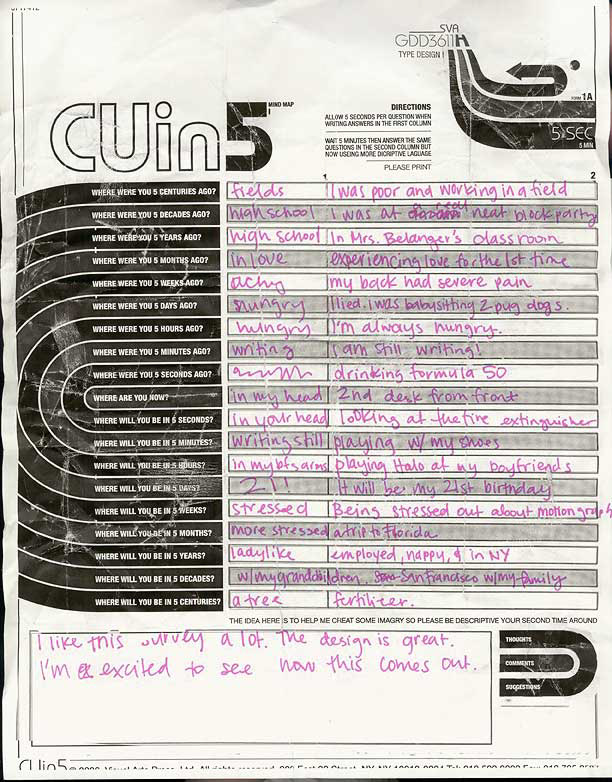 SVA
GDD3611H
TYPE DESIGN I
FORM 1A
5 SEC
5 MIN
CUin5
MIND MAP
DIRECTIONS
ALLOW 5 SECONDS PER QUESTION WHEN
WRITING ANSWERS IN THE FIRST COLUMN
WAIT 5 MINUTES THEN ANSWER THE SAME
QUESTIONS IN THE SECOND COLUMN BUT
NOW USEING MORE DICRIPTIVE LAGUAGE
PLEASE PRINT
1 2
WHERE WERE YOU 5 CENTURIES AGO? fields I was poor and working in a field
WHERE WERE YOU 5 DECADES AGO? high school I was at neat block party
WHERE WERE YOU 5 YEARS AGO? high school In Mrs. Belanger's classroom
WHERE WERE YOU 5 MONTHS AGO? in love experiencing love for the 1st time
WHERE WERE YOU 5 WEEKS AGO? achy my back had severe pain
WHERE WERE YOU 5 DAYS AGO? hungry I lied. I was babysitting 2 pug dogs.
WHERE WERE YOU 5 HOURS AGO? hungry I'm always hungry.
WHERE WERE YOU 5 MINUTES AGO? writing I am still writing!
WHERE WERE YOU 5 SECONDS AGO? drinking formula 50
WHERE ARE YOU NOW? in my head 2nd desk from front
WHERE WILL YOU BE IN 5 SECONDS? in your head looking at the fire extinguisher
WHERE WILL YOU BE IN 5 MINUTES? writing still playing w/ my shoes
WHERE WILL YOU BE IN 5 HOURS? in my bfs arms playing Halo at my boyfriends
WHERE WILL YOU BE IN 5 DAYS? 21! It will be my 21st birthday
WHERE WILL YOU BE IN 5 WEEKS? stressed Being stressed out about motiongraph
WHERE WILL YOU BE IN 5 MONTHS? more stressed a trip to Florida
WHERE WILL YOU BE IN 5 YEARS? ladylike employed, happy, & in NY
WHERE WILL YOU BE IN 5 DECADES? w/ my grandchildren. San Francisco w/ my family
WHERE WILL YOU BE IN 5 CENTURIES? a tree fertilizer.
THE IDEA HERE IS TO HELP ME CREAT SOME IMAGRY SO PLEASE BE DESCRIPTIVE YOUR SECOND TIME AROUND
I like this survey a lot. The design is great.
I'm excited to see how this comes out.
THOUGHTS
COMMENTS
SUGGESTIONS